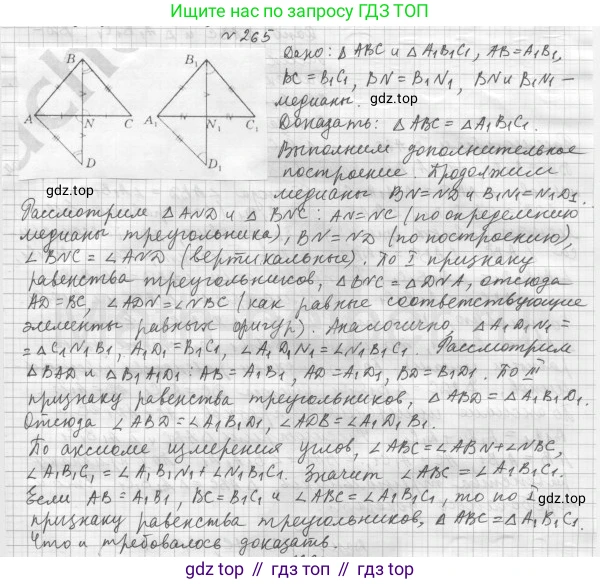 Ищите нас по запросу ГДЗ ТОП
gdz.top
№ 265
Дано: △ ABC и △ A₁B₁C₁, AB = A₁B₁,
BC = B₁C₁, BN = B₁N₁, BN и B₁N₁ –
медианы.
Доказать: △ ABC = △ A₁B₁C₁.
Выполним дополнительное
построение. Продолжим
медианы BN = ND и B₁N₁ = N₁D₁.
B B₁
A N C A₁ N₁ C₁
D D₁
Рассмотрим △ AND и △ BNC: AN = NC (по определению
медианы треугольника), BN = ND (по построению),
∠ BNC = ∠ AND (вертикальные). По I признаку
равенства треугольников, △ BNC = △ DNA, отсюда
AD = BC, ∠ ADN = ∠ NBC (как равные соответствующие
элементы равных фигур). Аналогично, △ A₁D₁N₁ =
= △ C₁N₁B₁, A₁D₁ = B₁C₁, ∠ A₁D₁N₁ = ∠ N₁B₁C₁. Рассмотрим
△ BAD и △ B₁A₁D₁: AB = A₁B₁, AD = A₁D₁, BD = B₁D₁. По III
признаку равенства треугольников, △ ABD = △ A₁B₁D₁.
Отсюда ∠ ABD = ∠ A₁B₁D₁, ∠ ADB = ∠ A₁D₁B₁.
По аксиоме измерения углов, ∠ ABC = ∠ ABN + ∠ NBC,
∠ A₁B₁C₁ = ∠ A₁B₁N₁ + ∠ N₁B₁C₁. Значит ∠ ABC = ∠ A₁B₁C₁.
Если AB = A₁B₁, BC = B₁C₁ и ∠ ABC = ∠ A₁B₁C₁, то по I
признаку равенства треугольников, △ ABC = △ A₁B₁C₁.
Что и требовалось доказать.
gdz.top // gdz.top // gdz.top // gdz.top